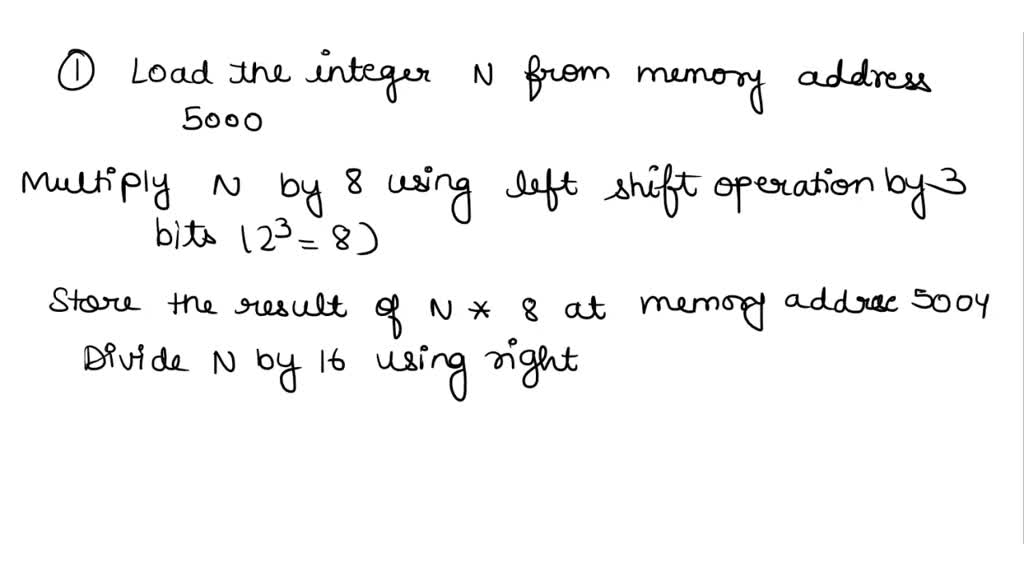 ① Load the integer N from memory address
5000
Multiply N by 8 using left shift operation by 3
bits (2³ = 8)
Store the result of N * 8 at memory addrec 5004
Divide N by 16 using right